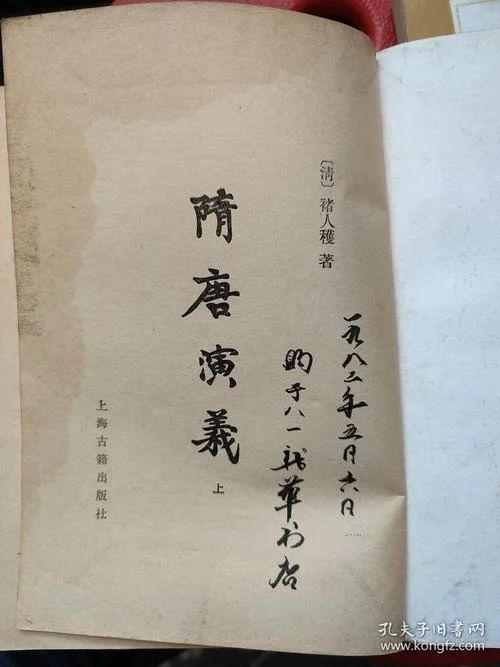 〔清〕褚人穫 著
隋唐演義
上
上海古籍出版社
一九八二年五月六日
购于八一新华书店
孔夫子旧书网
kongfz.com